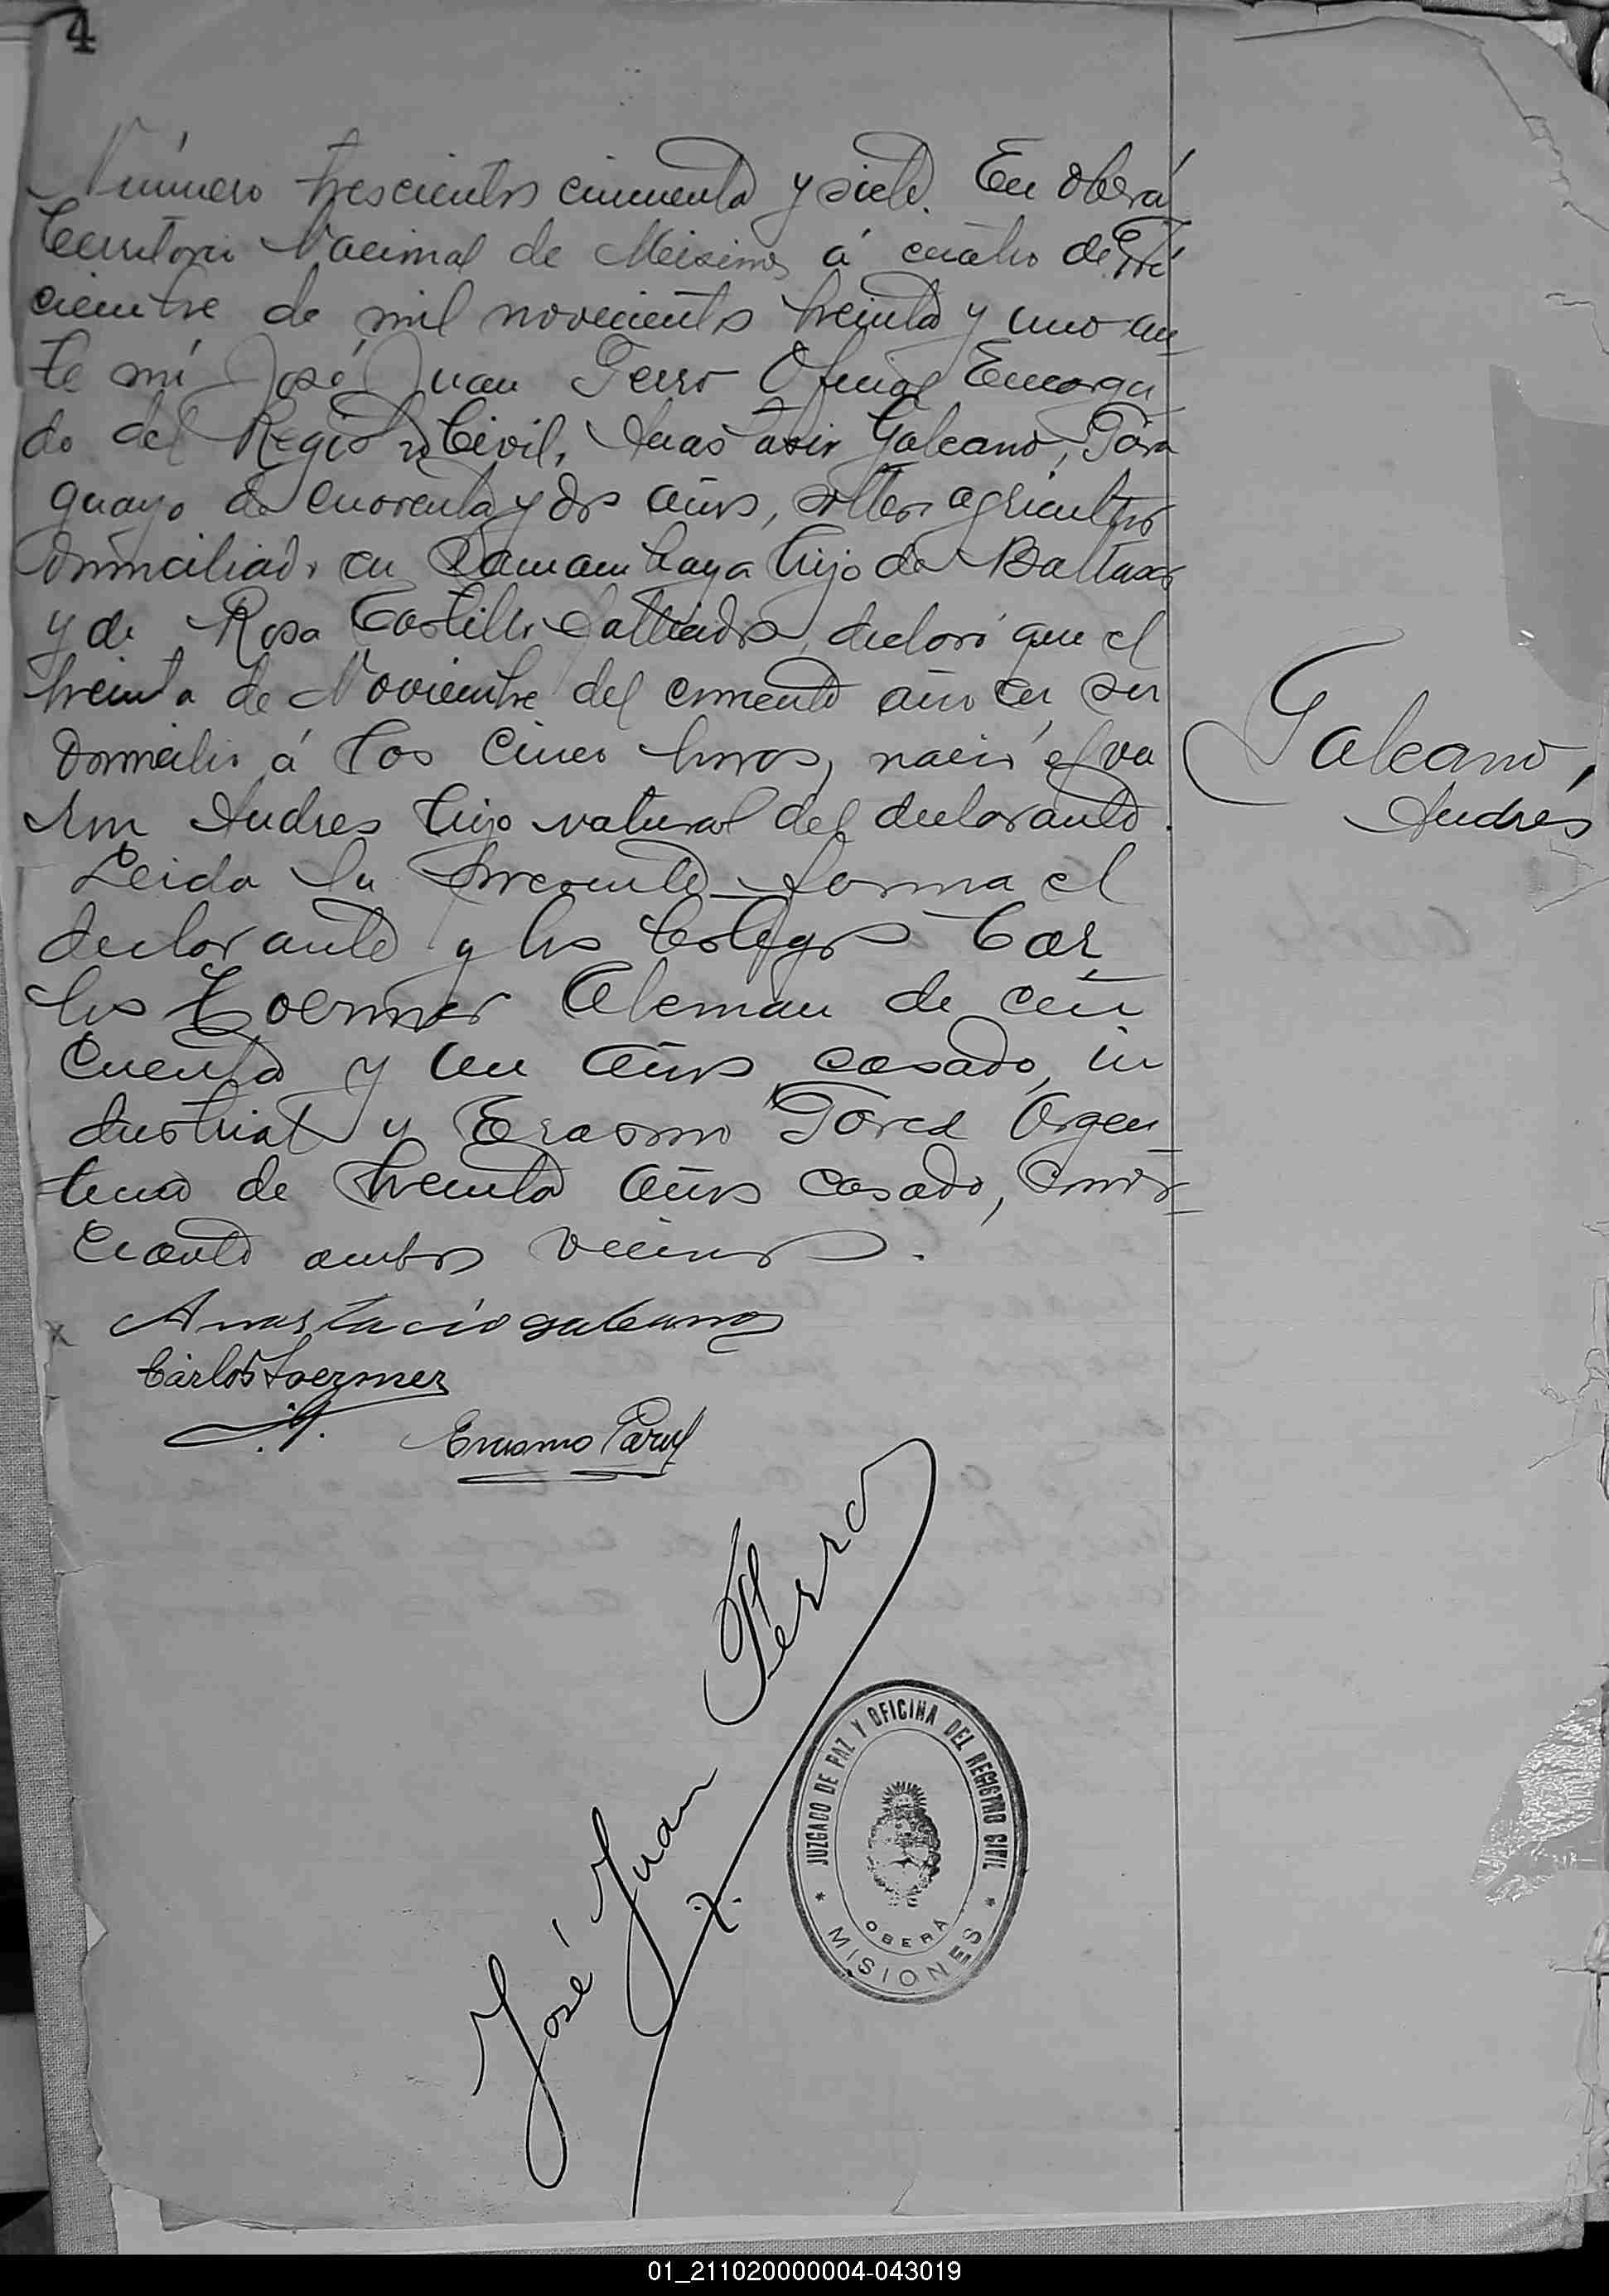 4
Número trescientos cincuenta y siete. En Oberá
Territorio Nacional de Misiones á cuatro de Di
ciembre de mil novecientos treinta y uno an
te mí José Juan Perro Oficial Encarga
do del Registro Civil, Anastasio Galeano, Para
guayo de cuarenta y dos años, soltero agricultor
domiciliado en hijo de Baltasar
y de Rosa Castillo declaró que el
treinta de Noviembre del corriente año en su
domicilio á las cinco horas, nació el va
rón Andres hijo natural del declarante.
Leida la presente forma el
declarante y los testigos Car
los Loermer Aleman de cin
cuenta y un años casado, in
dustrial y Erasmo Argen
tino de treinta años casado, comer
ciante ambos vecinos.
Galeano,
Andrés
Anastacio galeano
Carlos Loermer
Erasmo
José Juan Perro
JUZGADO DE PAZ Y OFICINA DEL REGISTRO CIVIL
* MISIONES *
OBERA
01_211020000004-043019